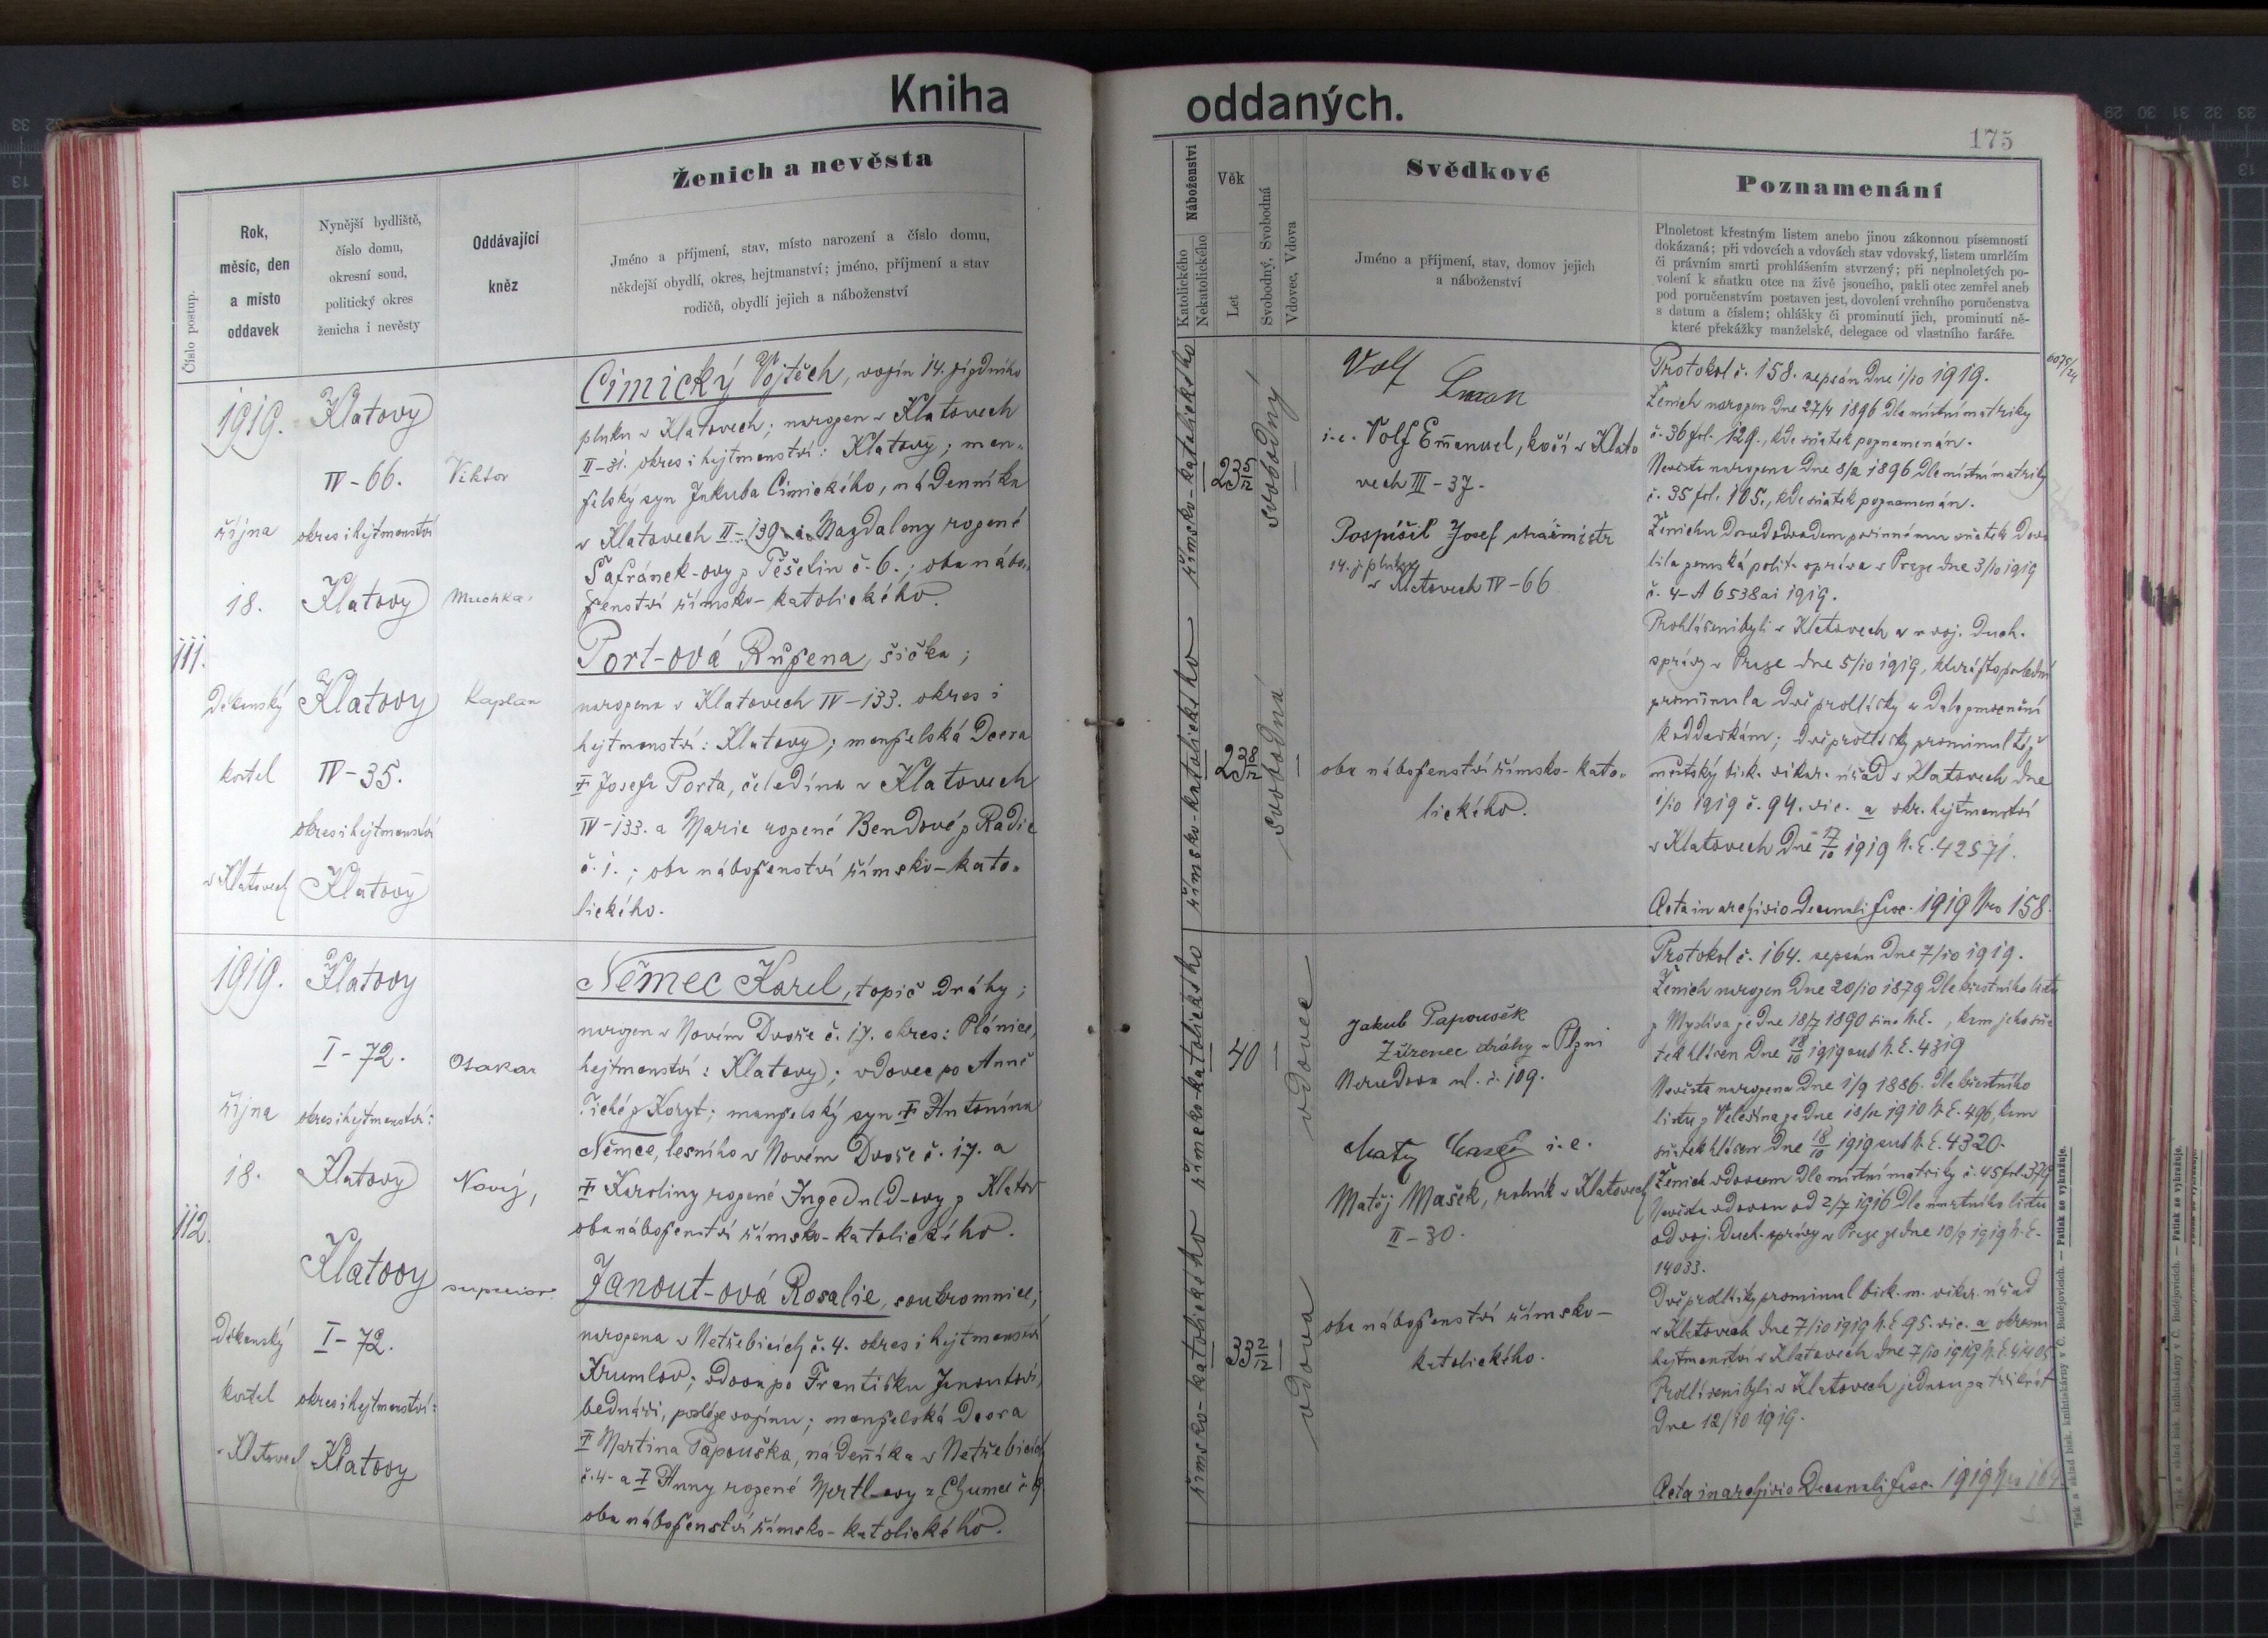 Kniha
oddaných.
175
Ženich a nevěsta
Číslo postup.
Rok,
měsíc, den
a místo
oddavek
Nynější bydliště,
číslo domu,
okresní soud,
politický okres
ženicha i nevěsty
Oddávající
kněz
Jméno a příjmení, stav, místo narození a číslo domu,
někdejší obydlí, okres, hejtmanství; jméno, příjmení a stav
rodičů, obydlí jejich a náboženství
Náboženství
Katolického
Nekatolického
Věk
Let
Svobodný, Svobodná
Vdovec, Vdova
Svědkové
Jméno a příjmení, stav, domov jejich
a náboženství
Poznamenání
Plnoletost křestným listem anebo jinou zákonnou písemností
dokázaná; při vdovcích a vdovách stav vdovský, listem umrlčím
či právním smrti prohlášením stvrzený; při neplnoletých po-
volení k sňatku otce na živě jsoucího, pakli otec zemřel aneb
pod poručenstvím postaven jest, dovolení vrchního poručenstva
s datum a číslem; ohlášky či prominutí jich, prominutí ně-
které překážky manželské, delegace od vlastního faráře.
111.
1919.
října
18.
Děkanský
kostel
v Klatovech
Klatovy
IV-66.
okres i hejtmanství
Klatovy
Klatovy
IV-35.
okres i hejtmanství
Klatovy
Viktor
Muchka,
kaplan
Cimický Vojtěch, vojín 14. jízdního
pluku v Klatovech; narozen v Klatovech
II-31. okres i hejtmanství: Klatovy; man-
želský syn Jakuba Cimického, nádenníka
v Klatovech II-139. a Magdaleny rozené
Šafránek-ovy z Těšetin č. 6.; oba nábo-
ženství římsko-katolického.
Port-ová Růžena, šička;
narozena v Klatovech IV-133. okres i
hejtmanství: Klatovy; manželská dcera
† Josefa Porta, čeledína v Klatovech
IV-133. a Marie rozené Bendové z Radic
č. 1.; oba náboženství římsko-kato-
lického.
římsko-katolického
římsko-katolického
23 5/12
23 8/12
svobodný
svobodná
Volf
i.e. Volf Emanuel, kočí v Klato
vech III-37.
Pospíšil Josef strážmistr
14. j. pluku
v Klatovech IV-66
oba náboženství římsko-kato-
lického.
6075/24
Protokol č. 158. sepsán dne 1/10 1919.
Ženich narozen dne 27/4 1896 dle místní matriky
č. 36 fol. 129., kde sňatek poznamenán.
Nevěsta narozena dne 8/2 1896 dle místní matriky
č. 35 fol. 105., kde sňatek poznamenán.
Ženichu sňatek dovo
lila zemská polit. správa v Praze dne 3/10 1919
č. 4-A 6538 ai 1919.
Prohlášeni byli v Klatovech a v voj. duch.
správy v Praze dne 5/10 1919,
prominula dvě prohlášky a dala zmocnění
k oddavkám; dvě prohlášky prominul též
městský bisk. vikar. úřad v Klatovech dne
1/10 1919 č. 94. vic. a okr. hejtmanství
v Klatovech dne 17/10 1919 N.E. 42571.
Acta in archivio Decanali fasc. 1919 Nro 158.
112.
1919.
října
18.
Děkanský
kostel
v Klatovech
Klatovy
I-72.
okres i hejtmanství:
Klatovy
Klatovy
I-72.
okres i hejtmanství:
Klatovy
Otakar
Nový,
superior.
Němec Karel, topič dráhy;
narozen v Novém Dvoře č. 17. okres: Plánice,
hejtmanství: Klatovy; vdovec po Anně
Tiché z Koryt; manželský syn † Antonína
Němce, lesního v Novém Dvoře č. 17. a
† Karoliny rozené Ingeduld-ovy z Klatov
oba náboženství římsko-katolického.
Janout-ová Rosalie, soukromnice,
narozena v Netřebicích č. 4. okres i hejtmanství
Krumlov; vdova po Františku Janoutovi,
bednáři, později vojínu; manželská dcera
† Martina Papouška, nádeníka v Netřebicích
č. 4. a † Anny rozené Mertl-ovy z Chumel č. 9
oba náboženství římsko-katolického.
římsko-katolického
římsko-katolického
40
33 2/12
vdovec
vdova
Jakub Papoušek
Zřízenec dráhy v Plzni
Nerudova ul. č. 109.
Matěj Mašek i.e.
Matěj Mašek, rolník v Klatovech
II-30.
oba náboženství římsko-
katolického.
Protokol č. 164. sepsán dne 7/10 1919.
Ženich narozen dne 20/10 1879 dle křestního listu
z Myslíva ze dne 18/7 1890 sine N.E., kam jeho sňa
tek hlášen dne 18/10 1919 sub N.E. 4319
Nevěsta narozena dne 1/9 1886. dle křestního
listu z Velešína ze dne 18/12 1910 N.E. 496, kam
sňatek hlášen dne 18/10 1919 sub N.E. 4320.
Ženich vdovcem dle místní matriky č. 45 fol. 379
Nevěsta vdovou od 2/7 1916 dle úmrtního listu
od voj. duch. správy v Praze ze dne 10/9 1919 N.E.
14033.
Dvě prohlášky prominul bisk. m. vikar. úřad
v Klatovech dne 7/10 1919 N.E. 95. vic. a okresní
hejtmanství v Klatovech dne 7/10 1919
Prohlášeni byli v Klatovech jednou za třikrát
dne 12/10 1919.
Acta in archivio Decanali fasc. 1919 Nro 164
Tisk a sklad bisk. knihtiskárny v Č. Budějovicích. — Patisk se vyhražuje.